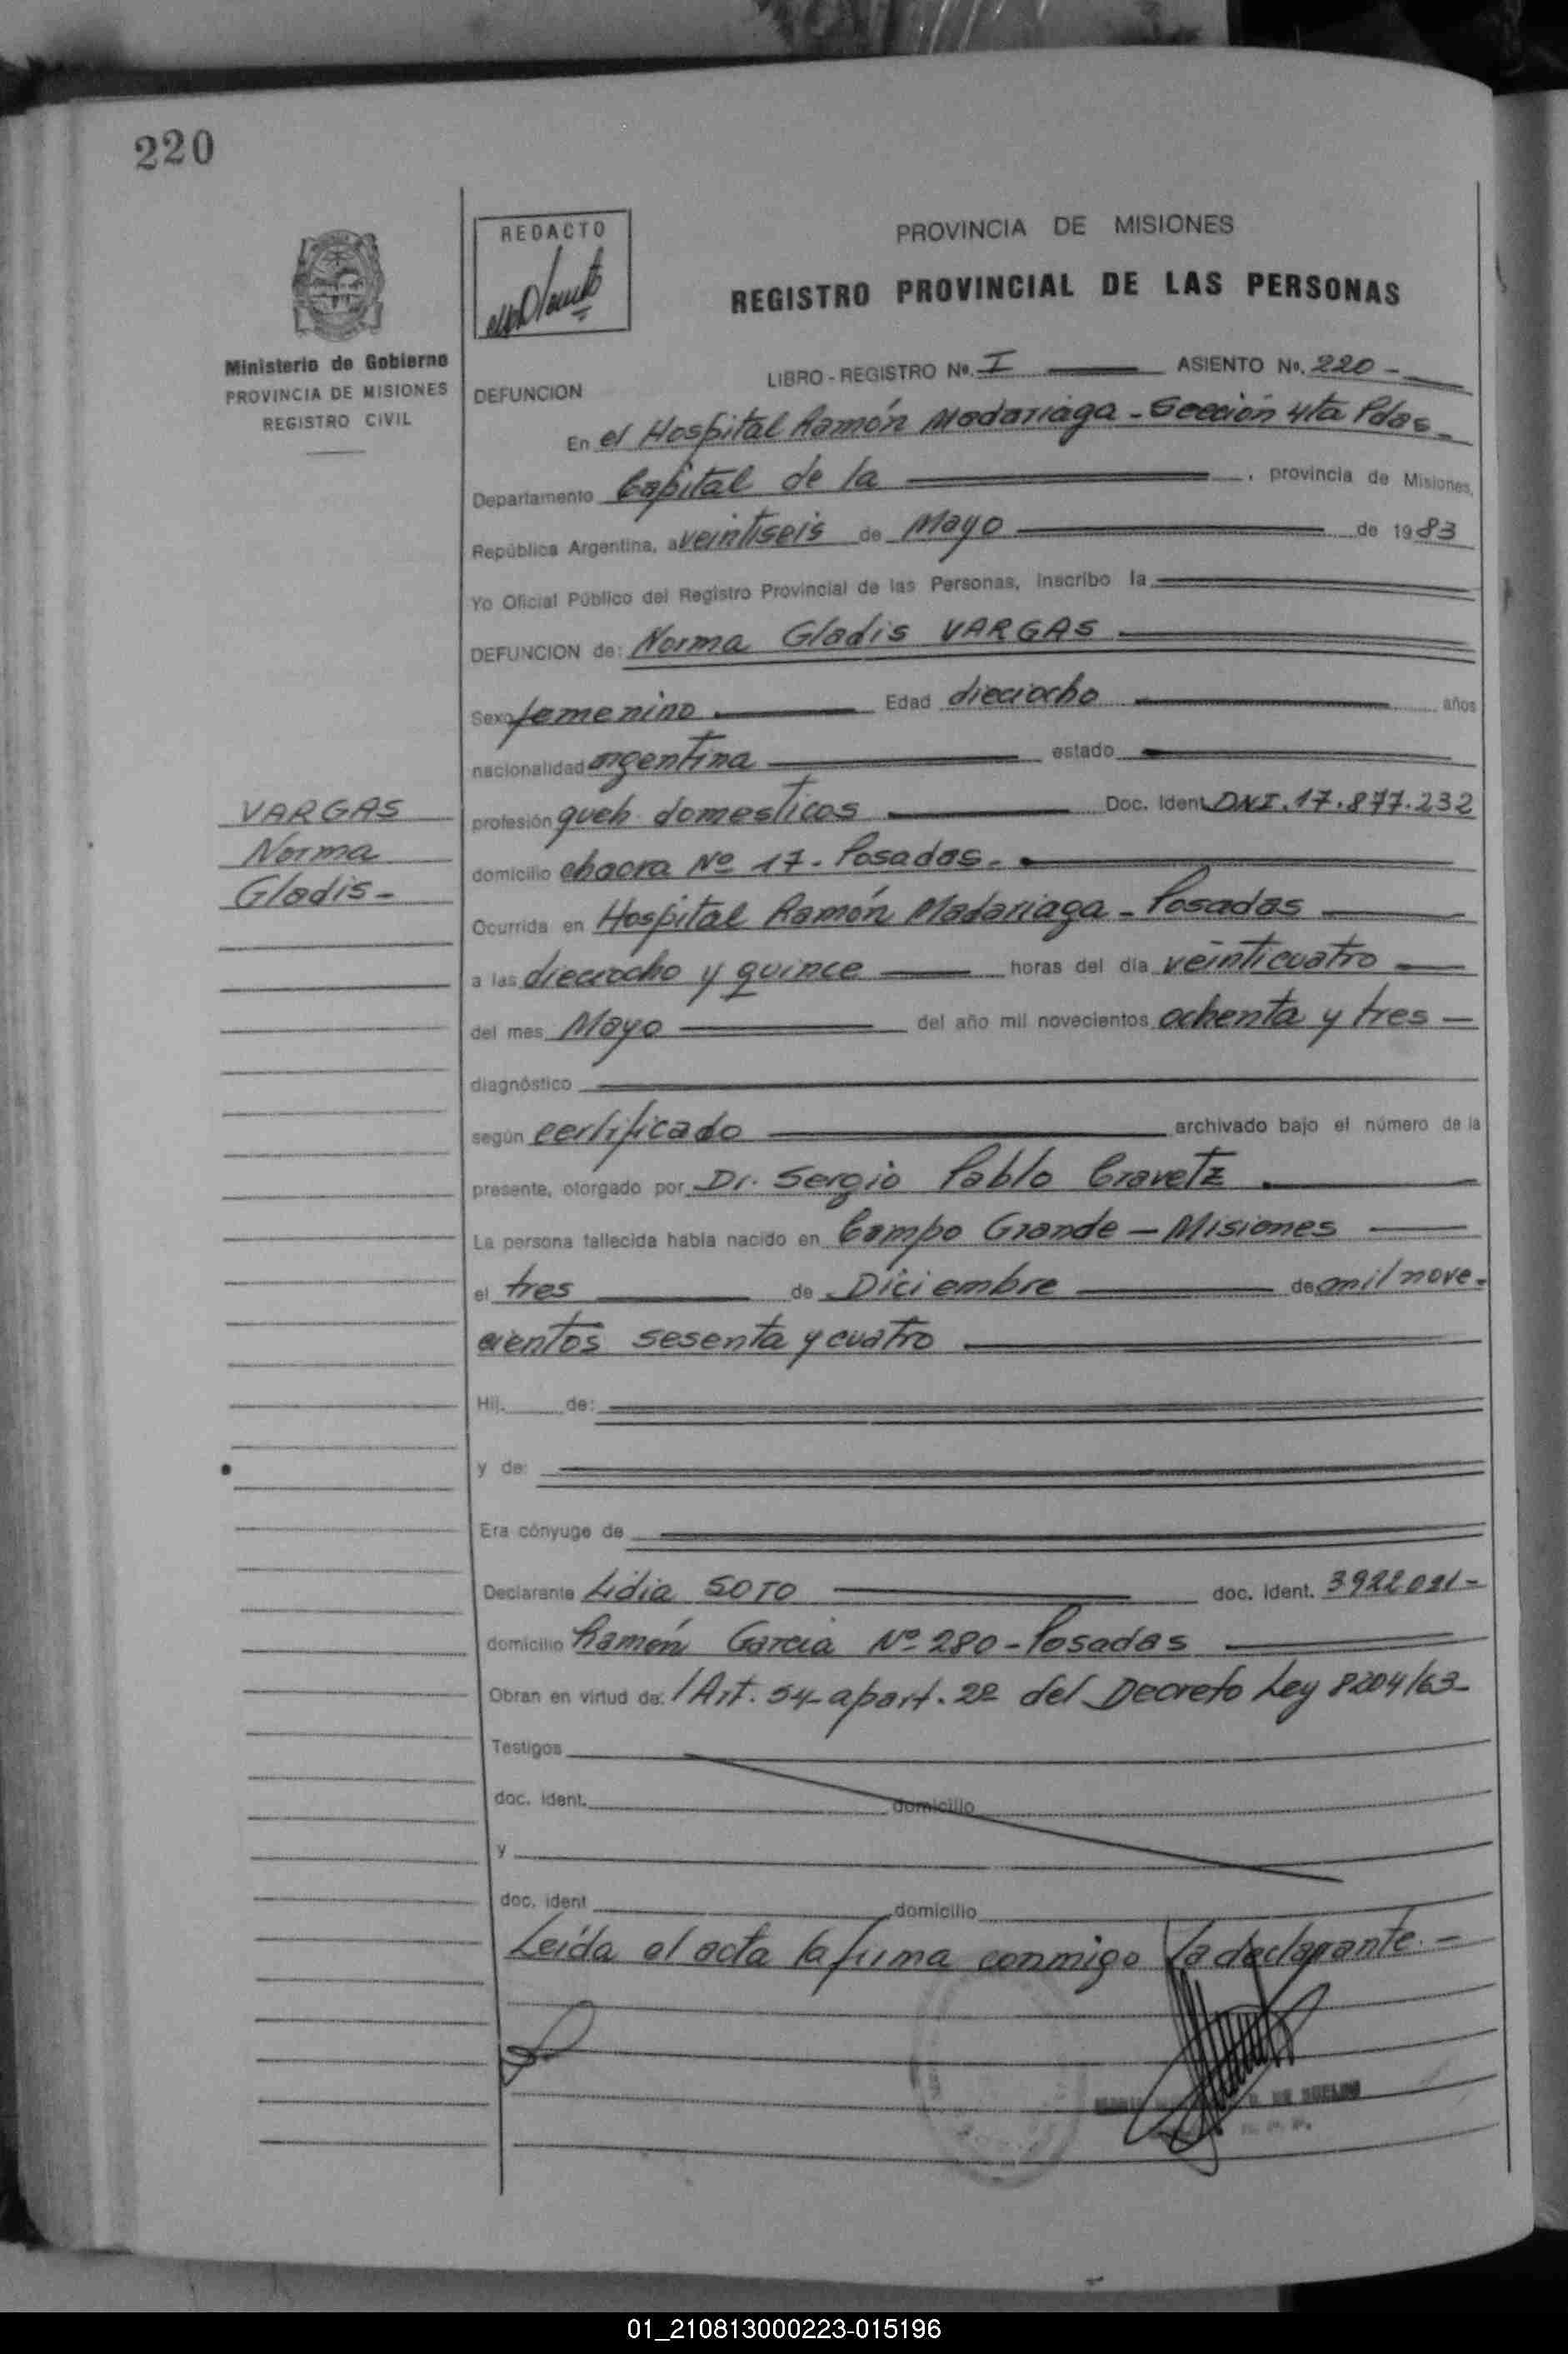 220
REDACTO
PROVINCIA DE MISIONES
REGISTRO PROVINCIAL DE LAS PERSONAS
Ministerio de Gobierno
PROVINCIA DE MISIONES
REGISTRO CIVIL
LIBRO - REGISTRO Nº. I ASIENTO Nº. 220 -
DEFUNCION
En el Hospital Ramón Madariaga - Sección 4ta Pdas -
Departamento Capital de la , provincia de Misiones,
República Argentina, a veintiseis de Mayo de 1983
Yo Oficial Público del Registro Provincial de las Personas, inscribo la
DEFUNCION de: Norma Gladis VARGAS
Sexo femenino Edad dieciocho años
nacionalidad argentina estado
VARGAS
Norma
Gladis -
profesión queh. domesticos Doc. Ident. DNI. 17.877.232
domicilio chacra Nº 17 - Posadas -
Ocurrida en Hospital Ramón Madariaga - Posadas
a las dieciocho y quince horas del día veinticuatro
del mes Mayo del año mil novecientos ochenta y tres -
diagnóstico
según certificado archivado bajo el número de la
presente, otorgado por Dr. Sergio Pablo Cravetz
La persona fallecida había nacido en Campo Grande - Misiones
el tres de Diciembre de mil nove-
cientos sesenta y cuatro
Hij. de:
y de:
Era cónyuge de
Declarante Lidia SOTO doc. ident. 3.922.021 -
domicilio Ramón Garcia Nº 280 - Posadas
Obran en virtud de: /Art. 54 - apart. 2º del Decreto Ley 8204/63 -
Testigos
doc. ident. domicilio
y
doc. ident domicilio
Leída el acta la firma conmigo la declarante. -
01_210813000223-015196